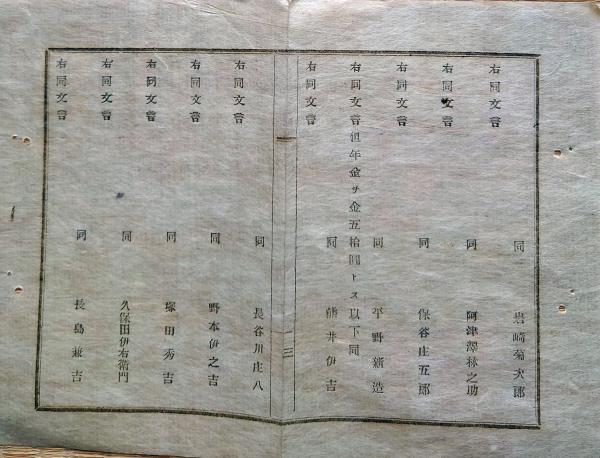 右同文言
同 岩崎菊次郎
右同文言
同 阿津澤林之助
右同文言
同 保谷庄五郎
右同文言但年金ヲ金五拾圓トス以下同
同 平野新造
右同文言
同 熊井伊吉
三
右同文言
同 長谷川庄八
右同文言
同 野本伊之吉
右同文言
同 塚田秀吉
右同文言
同 久保田伊右衛門
右同文言
同 長島兼吉